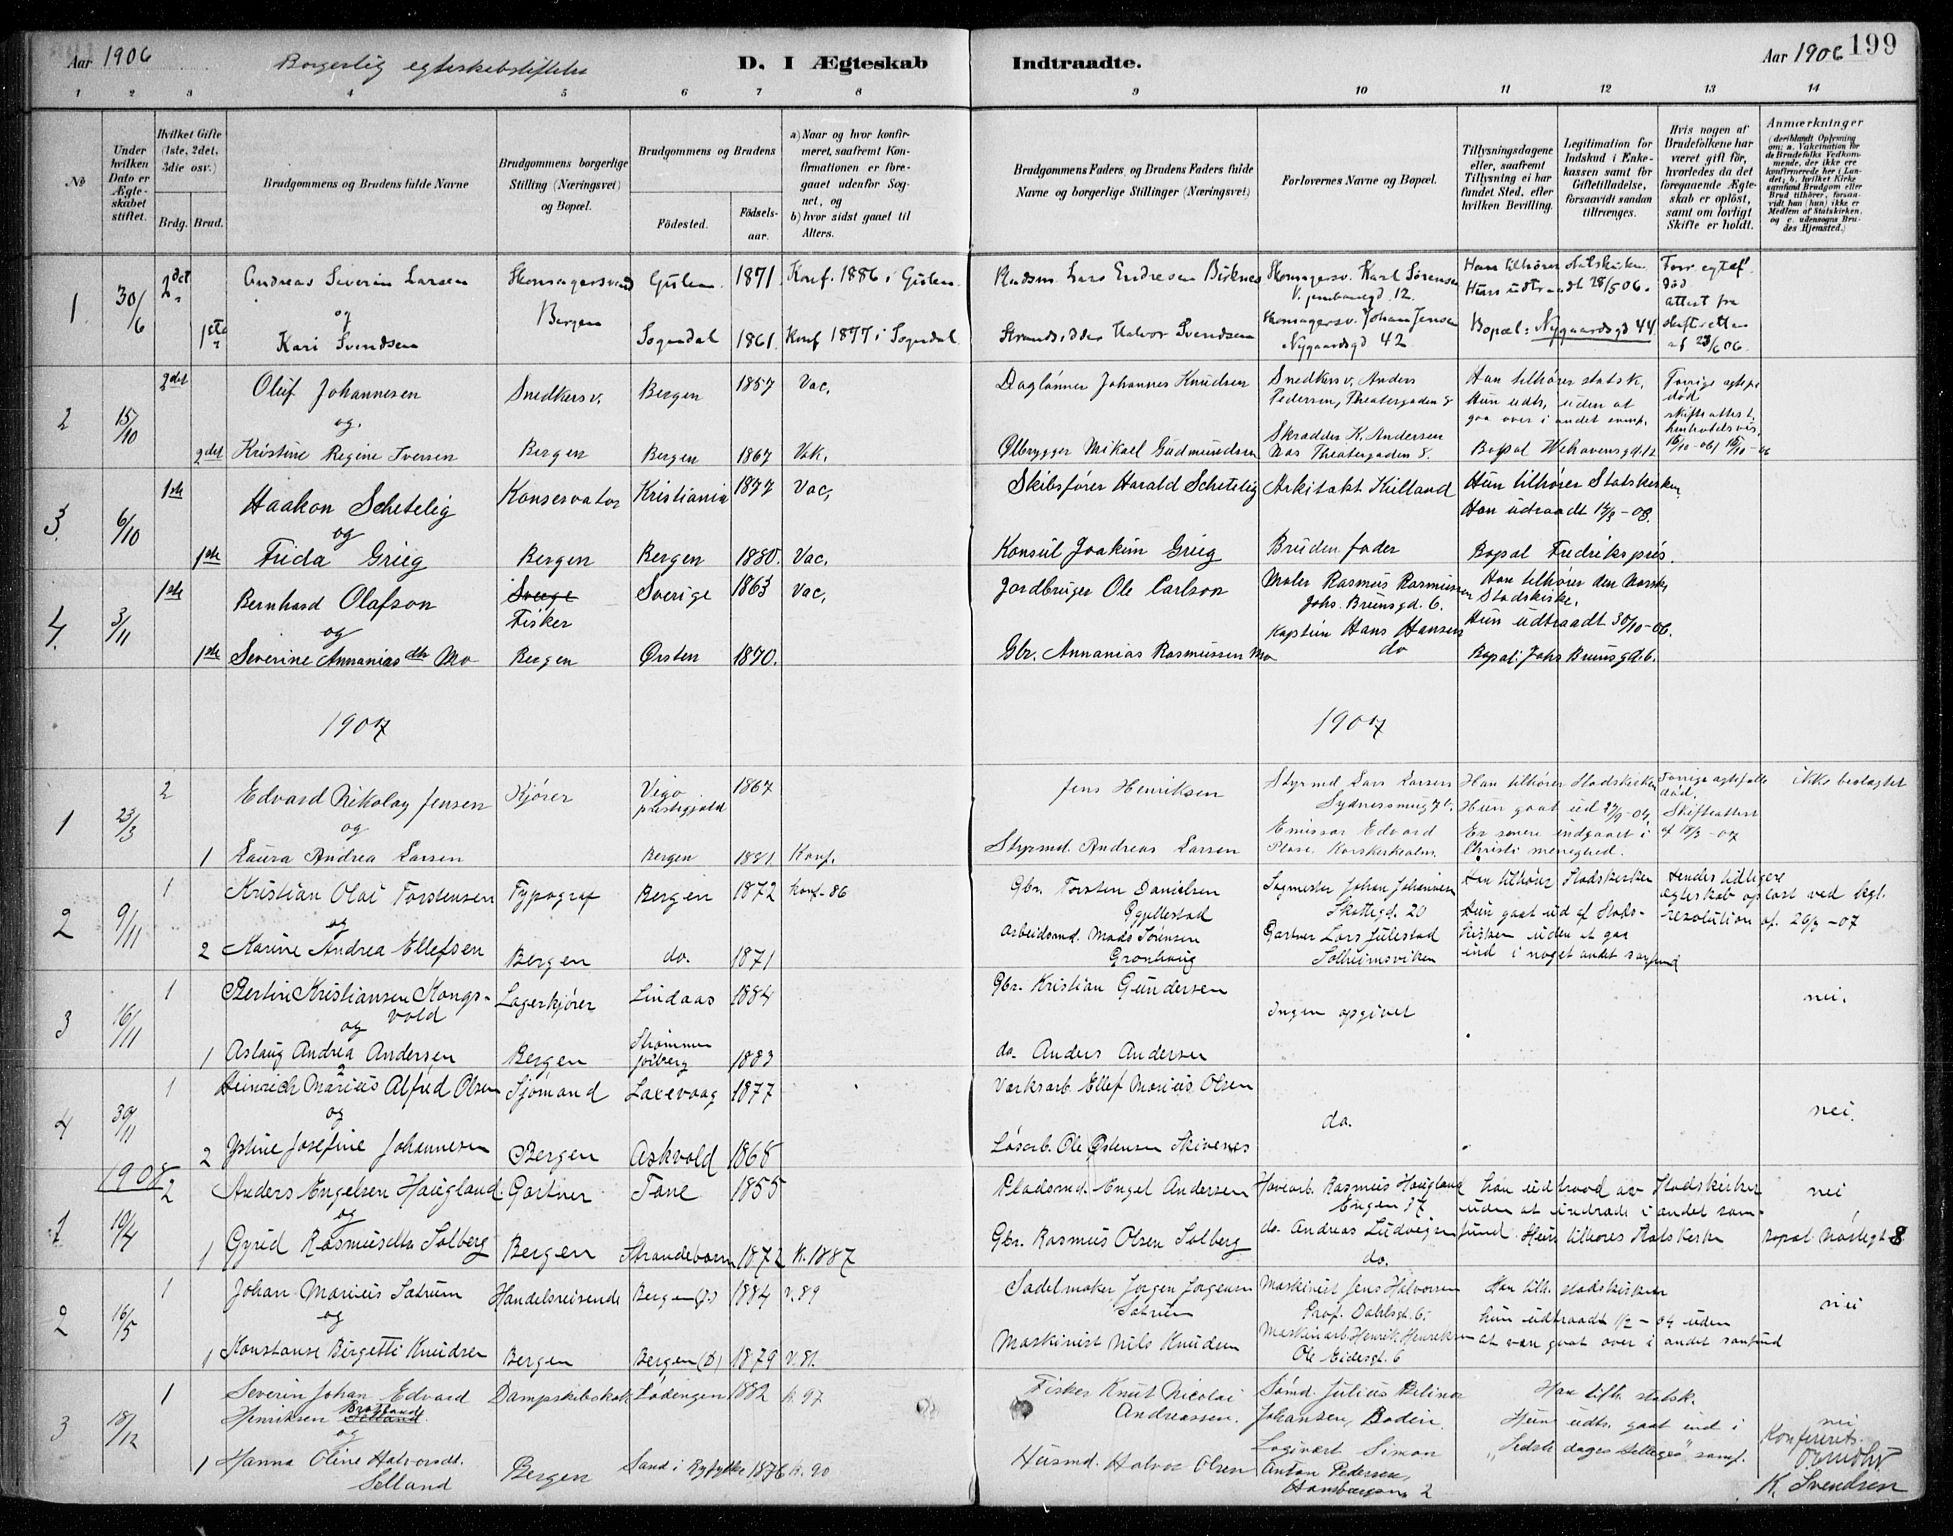 Aar 1906
Borgerlig egteskabstiftelse
D. I Ægteskab Indtraadte.
Aar 1906 199
1 2 3 4 5 6 7 8 9 10 11 12 13 14
No
Under hvilken Dato er Ægteskabet stiftet.
Hvilket Gifte (1ste, 2det, 3die osv.)
Brdg. Brud.
Brudgommens og Brudens fulde Navne
Brudgommens borgerlige Stilling (Næringsvei) og Bopæl.
Brudgommens og Brudens
Fødested.
Fødsels-aar.
a) Naar og hvor konfirmeret, saafremt Konfirmationen er foregaaet udenfor Sognet, og
b) hvor sidst gaaet til Alters.
Brudgommens Faders og Brudens Faders fulde Navne og borgerlige Stillinger (Næringsvei)
Forlovernes Navne og Bopæl.
Tillysningsdagene eller, saafremt Tillysning ei har fundet Sted, efter hvilken Bevilling.
Legitimation for Indskud i Enkekassen samt for Giftetilladelse, forsaavidt saadan tiltrænges.
Hvis nogen af Brudefolkene har været gift før, hvorledes da det foregaaende Ægteskab er opløst, samt om lovligt Skifte er holdt.
Anmærkninger
(deriblandt Oplysning om: a. Vakcination for de Brudefolks Vedkommende, der ikke ere konfirmerede her i Landet; b. hvilket Kirkesamfund Brudgom eller Brud tilhører, forsaavidt han (hun) ikke er Medlem af Statskirken, og c. udensogns Brudes Hjemsted.)
1 30/6 2det Andreas Severin Larsen Skomagersvend Gulen 1871 Konf. 1886 i Gulen Lars Endresen Birknes Skomagersv. Karl Sørensen 12. Han tilhører statskirken Forr. egtef. død
og Bergen Hun udtraadt 28/5 06. attest fra
1ste Kari Svendsen Sogndal 1861 Konf 1877 i Sogndal Strandsidder Halvor Svendsen Skomagersv. Johan Jensen Nygaardsgd 42 Bopæl: Nygaardsgd 44 skifteretten af 23/6 06.
2 15/10 2det Oluf Johannesen Snedkersv. Bergen 1857 Vac. Dagløнner Johannes Knudsen Snedkersv. Anders Pedersen, Theatergaden 8 Han tilhører statsk. Forrige egtef. død
og. Hun udtr. uden at gaa over i andet samf. skifteattest
2det Kristine Regine Iversen Bergen Bergen 1867 Vak. Ølbrygger Mikael Gudmundsen Skrædder K. Andersen Theatergaden 8. Bopæl
3. 6/10 1ste Haakon Schetelig Konservator Kristiania 1877 Vac, Skibsfører Harald Schetelig Arkitekt Killand Hun tilhører Statskirken
og Han udtraadt 14/3 - 08.
1ste Frida Grieg Bergen Bergen 1880. Vac. Konsul Joakim Grieg Brudens fader Bopæl Fredrikspris.
4. 3/11 1ste Bernhard Olafson Sverge Sverige 1863 Vac, Jordbruger Ole Carlson Maler Rasmus Rasmussen Johs. Brunsgd. 6. Han tilhører den Norske Stadskirke.
og Fisker Kaptein Hans Hansen Hun udtraadt 30/10-06.
1ste Severine Annanias dtr Mo Bergen Ørsten 1870. Gbr. Annanias Rasmussen Mo do Bopæl: Johs Brunsgd. 6.
1907 1907
1 23/3 2 Edvard Nikolay Jensen Kjører Vigø præstegjæld 1867 Jens Henriksen Styrmd Lars Larsen Han tilhører Stadskirken Forrige egtefelle død
og Hun gaat ud 27/9-04. Skifteattest
1 Laura Andrea Larsen Bergen 1881 Konf. Styrmd. Andreas Larsen Emissær Edvard Er senere indgaaet i Christi menighed. af 18/3-07
2 9/11 1 Kristian Olai Torstensen Typograf Bergen 1872 konf-86 Gbr. Torsten Danielsen Gjellestad Johan Johansen 20 Han tilhører Stadskirken Hendes tidligere
og Hun gaat ud af Stads- ægteskab opløst ved kgl. resolution af 26/3-07
2 Karine Andrea Ellefsen Bergen do. 1871 Arbeidsmd. Mads Sørensen Grønhaug Gartner Lars Julestad Solheimsviken kirken uden at gaa ind i noget andet samfund
3 16/11 1 Bertin Kristiansen Kongs- Lagerkjører Lindaas 1884 Gbr. Kristian Gundersen nei.
vold Ingen opgivet
og
1 Aslaug Andrea Andersen Bergen 1883 do. Anders Andersen
4 30/11 1 Heinrich Marius Alfred Olsen Sjømand Laxevaag 1877 Værksarb. Ellef Marius Olsen
og do. nei.
2 Josefine Johannesen Bergen Askvold 1868 Løsarb. Ole Østensen Skivenes
1908
1 10/4 2 Anders Engelsen Haugland Gartner Tane 1855 Pladsmd. Engel Andersen Havearb. Rasmus Haugland Engen 37 han udtraad av Stadskirken nei
og uden at indtræde i andet sam-
1 Gyrid Rasmusdtr Solberg Bergen Strandebarm 1872 K. 1887 Gbr. Rasmus Olsen Solberg do. Andreas Ludvigsen do. fund. Hun tilhøres Statskirke Bopæl Nøstegt 8
2 16/5 1 Johan Marius Sætrum Handelsreisende Bergen 1884 v. 89 Sadelmaker Jørgen Jørgensen Sætrum Maskinist Jens Halvorsen Prof. Dahlsgt. 6. Han tilh. stadskirken nei
og hun udtraadt 1/2-04 uden
1 Konstanse Birgette Knudsen Bergen Bergen (D) 1879 v. 81. Maskinist Nils Knudsen Maskinarb Henrik Henriksen 6 at være gaat over i andet samfund
3 18/12 1 Severin Johan Edvard Dampskibskok Lødingen 1882 k. 97 Fisker Knut Nicolai Sømd Julius Han tilh. statsk.
Henriksen Selland. Andreassen. Johansen, Bodin. Hun udtr. gaat ind i nei
og Logivært Simon „Sidste dages hellige" samf. Konfereret
1 Hanna Oline Halvorsdt. Bergen Sand i Ryfylke 1876 k. 90 Husmd. Halvor Olsen Anton Pedersen, 2
Selland K. Svendsen